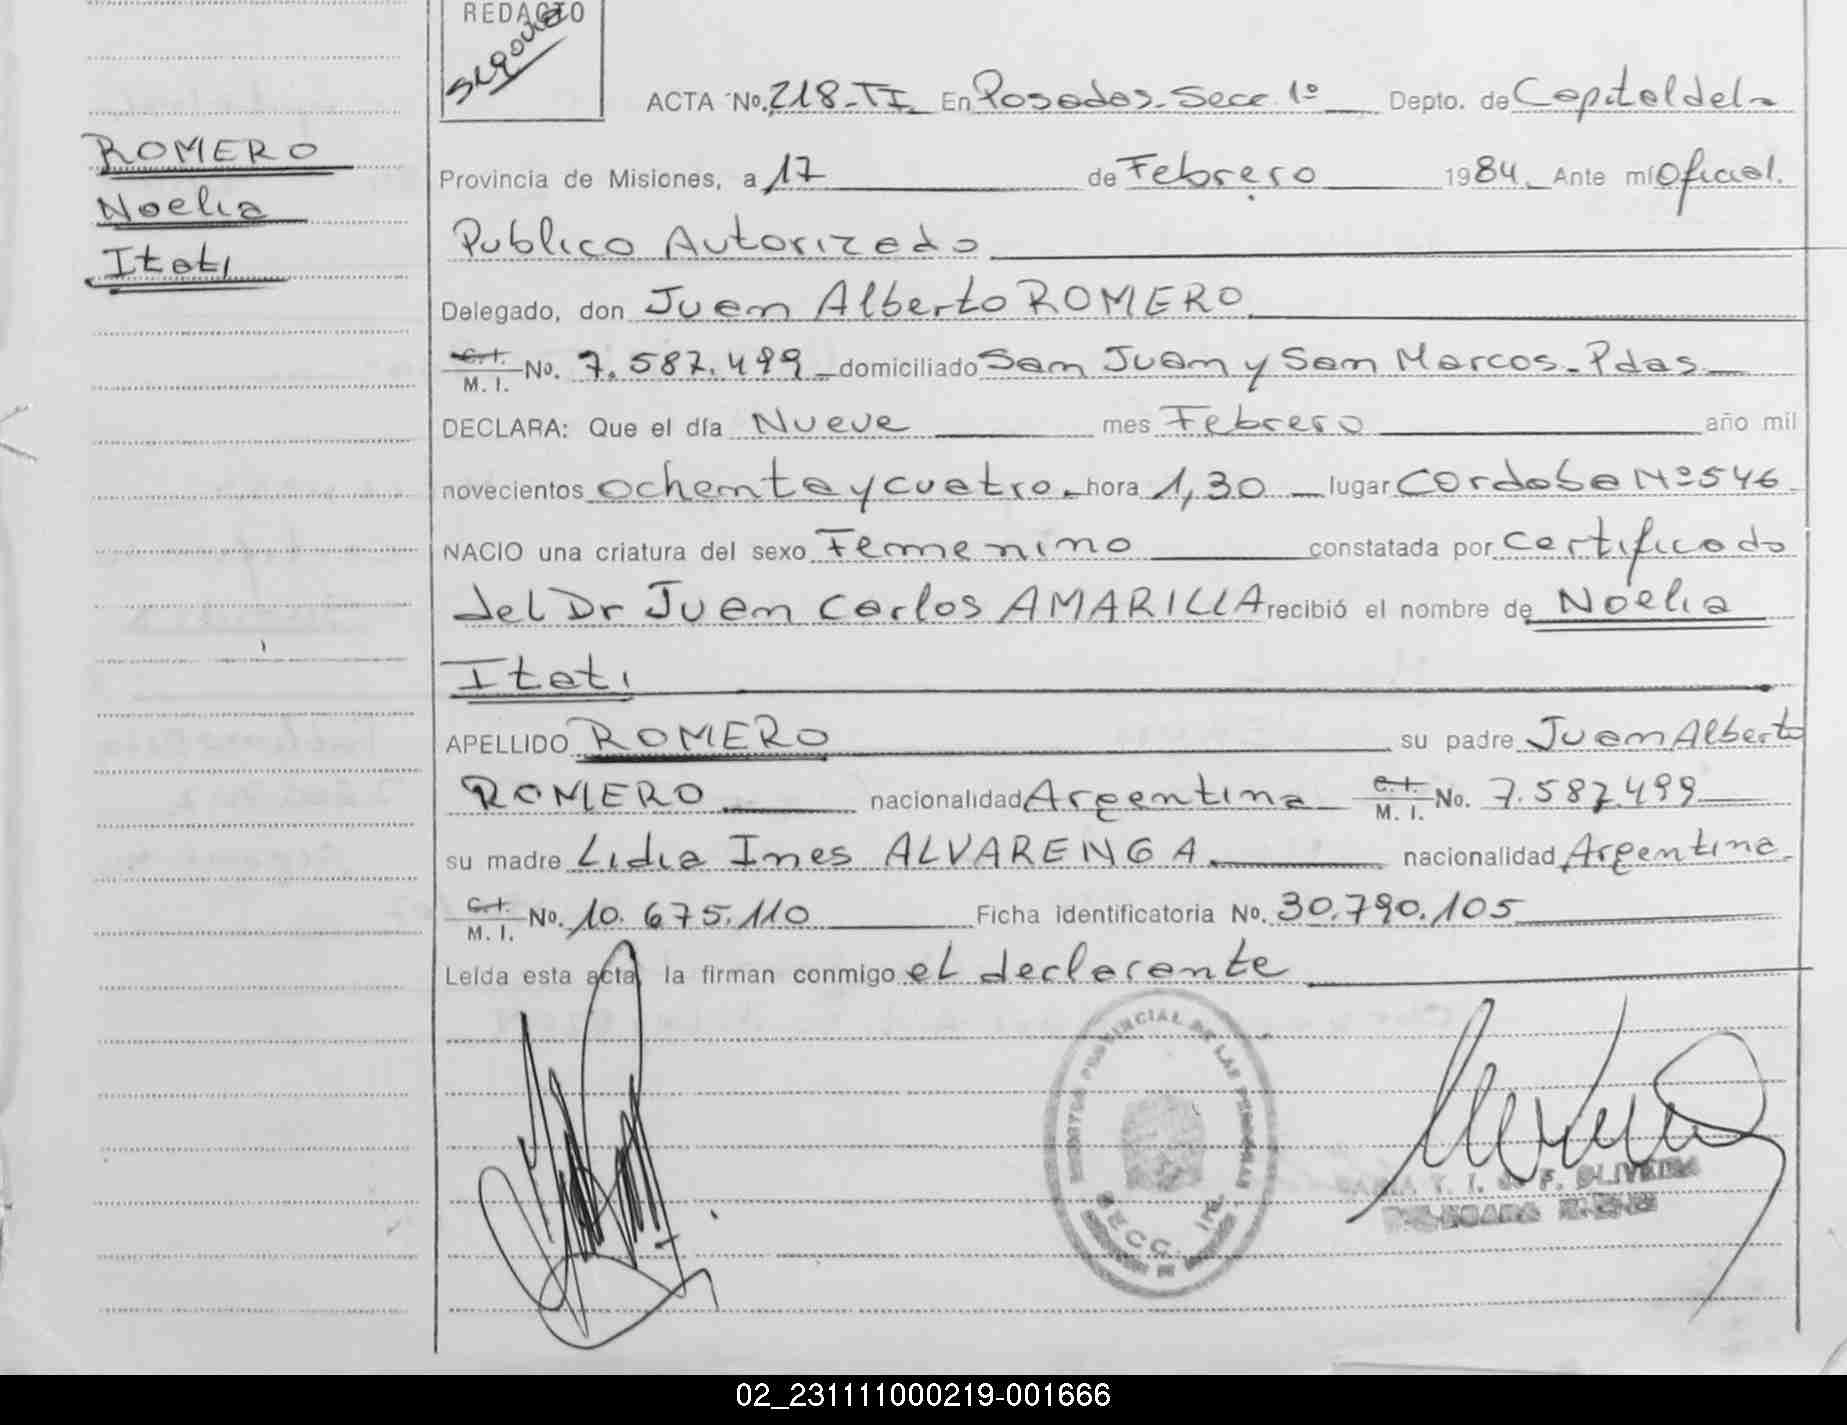 REDACTO
Segovia
ACTA No. 218-TI. En Posadas-Secc. 1º Depto. de Capital de la
ROMERO
Noelia
Itati
Provincia de Misiones, a 17 de Febrero 1984. Ante mí Oficial.
Publico Autorizado
Delegado, don Juan Alberto ROMERO
C.I. M. I. No. 7.587.499 domiciliado San Juan y San Marcos-Pdas.
DECLARA: Que el día Nueve mes Febrero año mil
novecientos ochenta y cuatro hora 1,30 lugar Cordoba Nº 546
NACIO una criatura del sexo Femenino constatada por certificado
del Dr Juan Carlos AMARILLA recibió el nombre de Noelia
Itati
APELLIDO ROMERO su padre Juan Alberto
ROMERO nacionalidad Argentina C.I. M. I. No. 7.587.499
su madre Lidia Ines ALVARENGA. nacionalidad Argentina.
C.I. M. I. No. 10.675.110 Ficha identificatoria No. 30.790.105
Leída esta acta la firman conmigo el declarante
PROVINCIAL DE LAS PERSONAS
SECC. 1ra.
F. OLIVEIRA
02_231111000219-001666